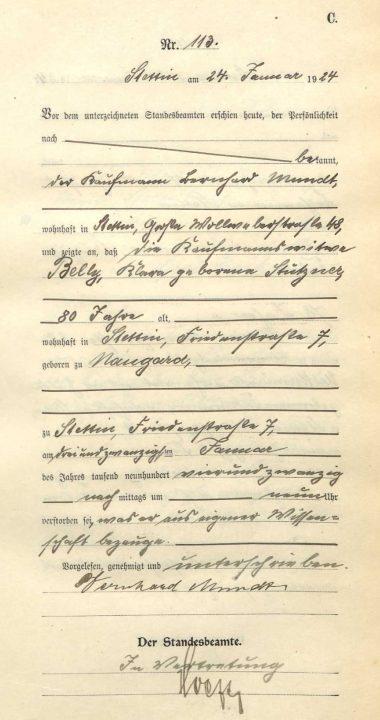 C.
Nr. 113.
Stettin am 24. Januar 1924
Vor dem unterzeichneten Standesbeamten erschien heute, der Persönlichkeit
nach
bekannt,
der Kaufmann Bernhard Mundt,
wohnhaft in Stettin, Große Wollweberstraße 48,
und zeigte an, daß die Kaufmannswitwe
Belly, Klara geborene Stützner,
80 Jahre alt,
wohnhaft in Stettin, Friedenstraße 7,
geboren zu Naugard,
zu Stettin, Friedenstraße 7,
am dreiundzwanzigsten Januar
des Jahres tausend neunhundert vierundzwanzig
nachmittags um neun Uhr
verstorben sei, was er aus eigener Wissen=
schaft bezeuge.
Vorgelesen, genehmigt und unterschrieben.
Bernhard Mundt
Der Standesbeamte.
In Vertretung